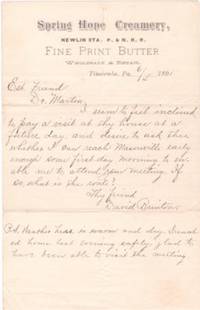 Spring Hope Creamery,
NEWLIN STA. P. & N. R. R.
FINE PRINT BUTTER
WHOLESALE & RETAIL.
Timicula, Pa. 6/ 1891
Est. Friend
Dr. Martin;
I seem to feel inclined
to pay a visit at thy house at a
future day and desire to ask thee
whether I can reach early
enough some first day morning to en-
able me to attend your meeting. If
so, what is the route?
Thy friend
David
P.S. Weather here is warm and dry.
ed home last evening safely, glad to
have been able to visit the meeting